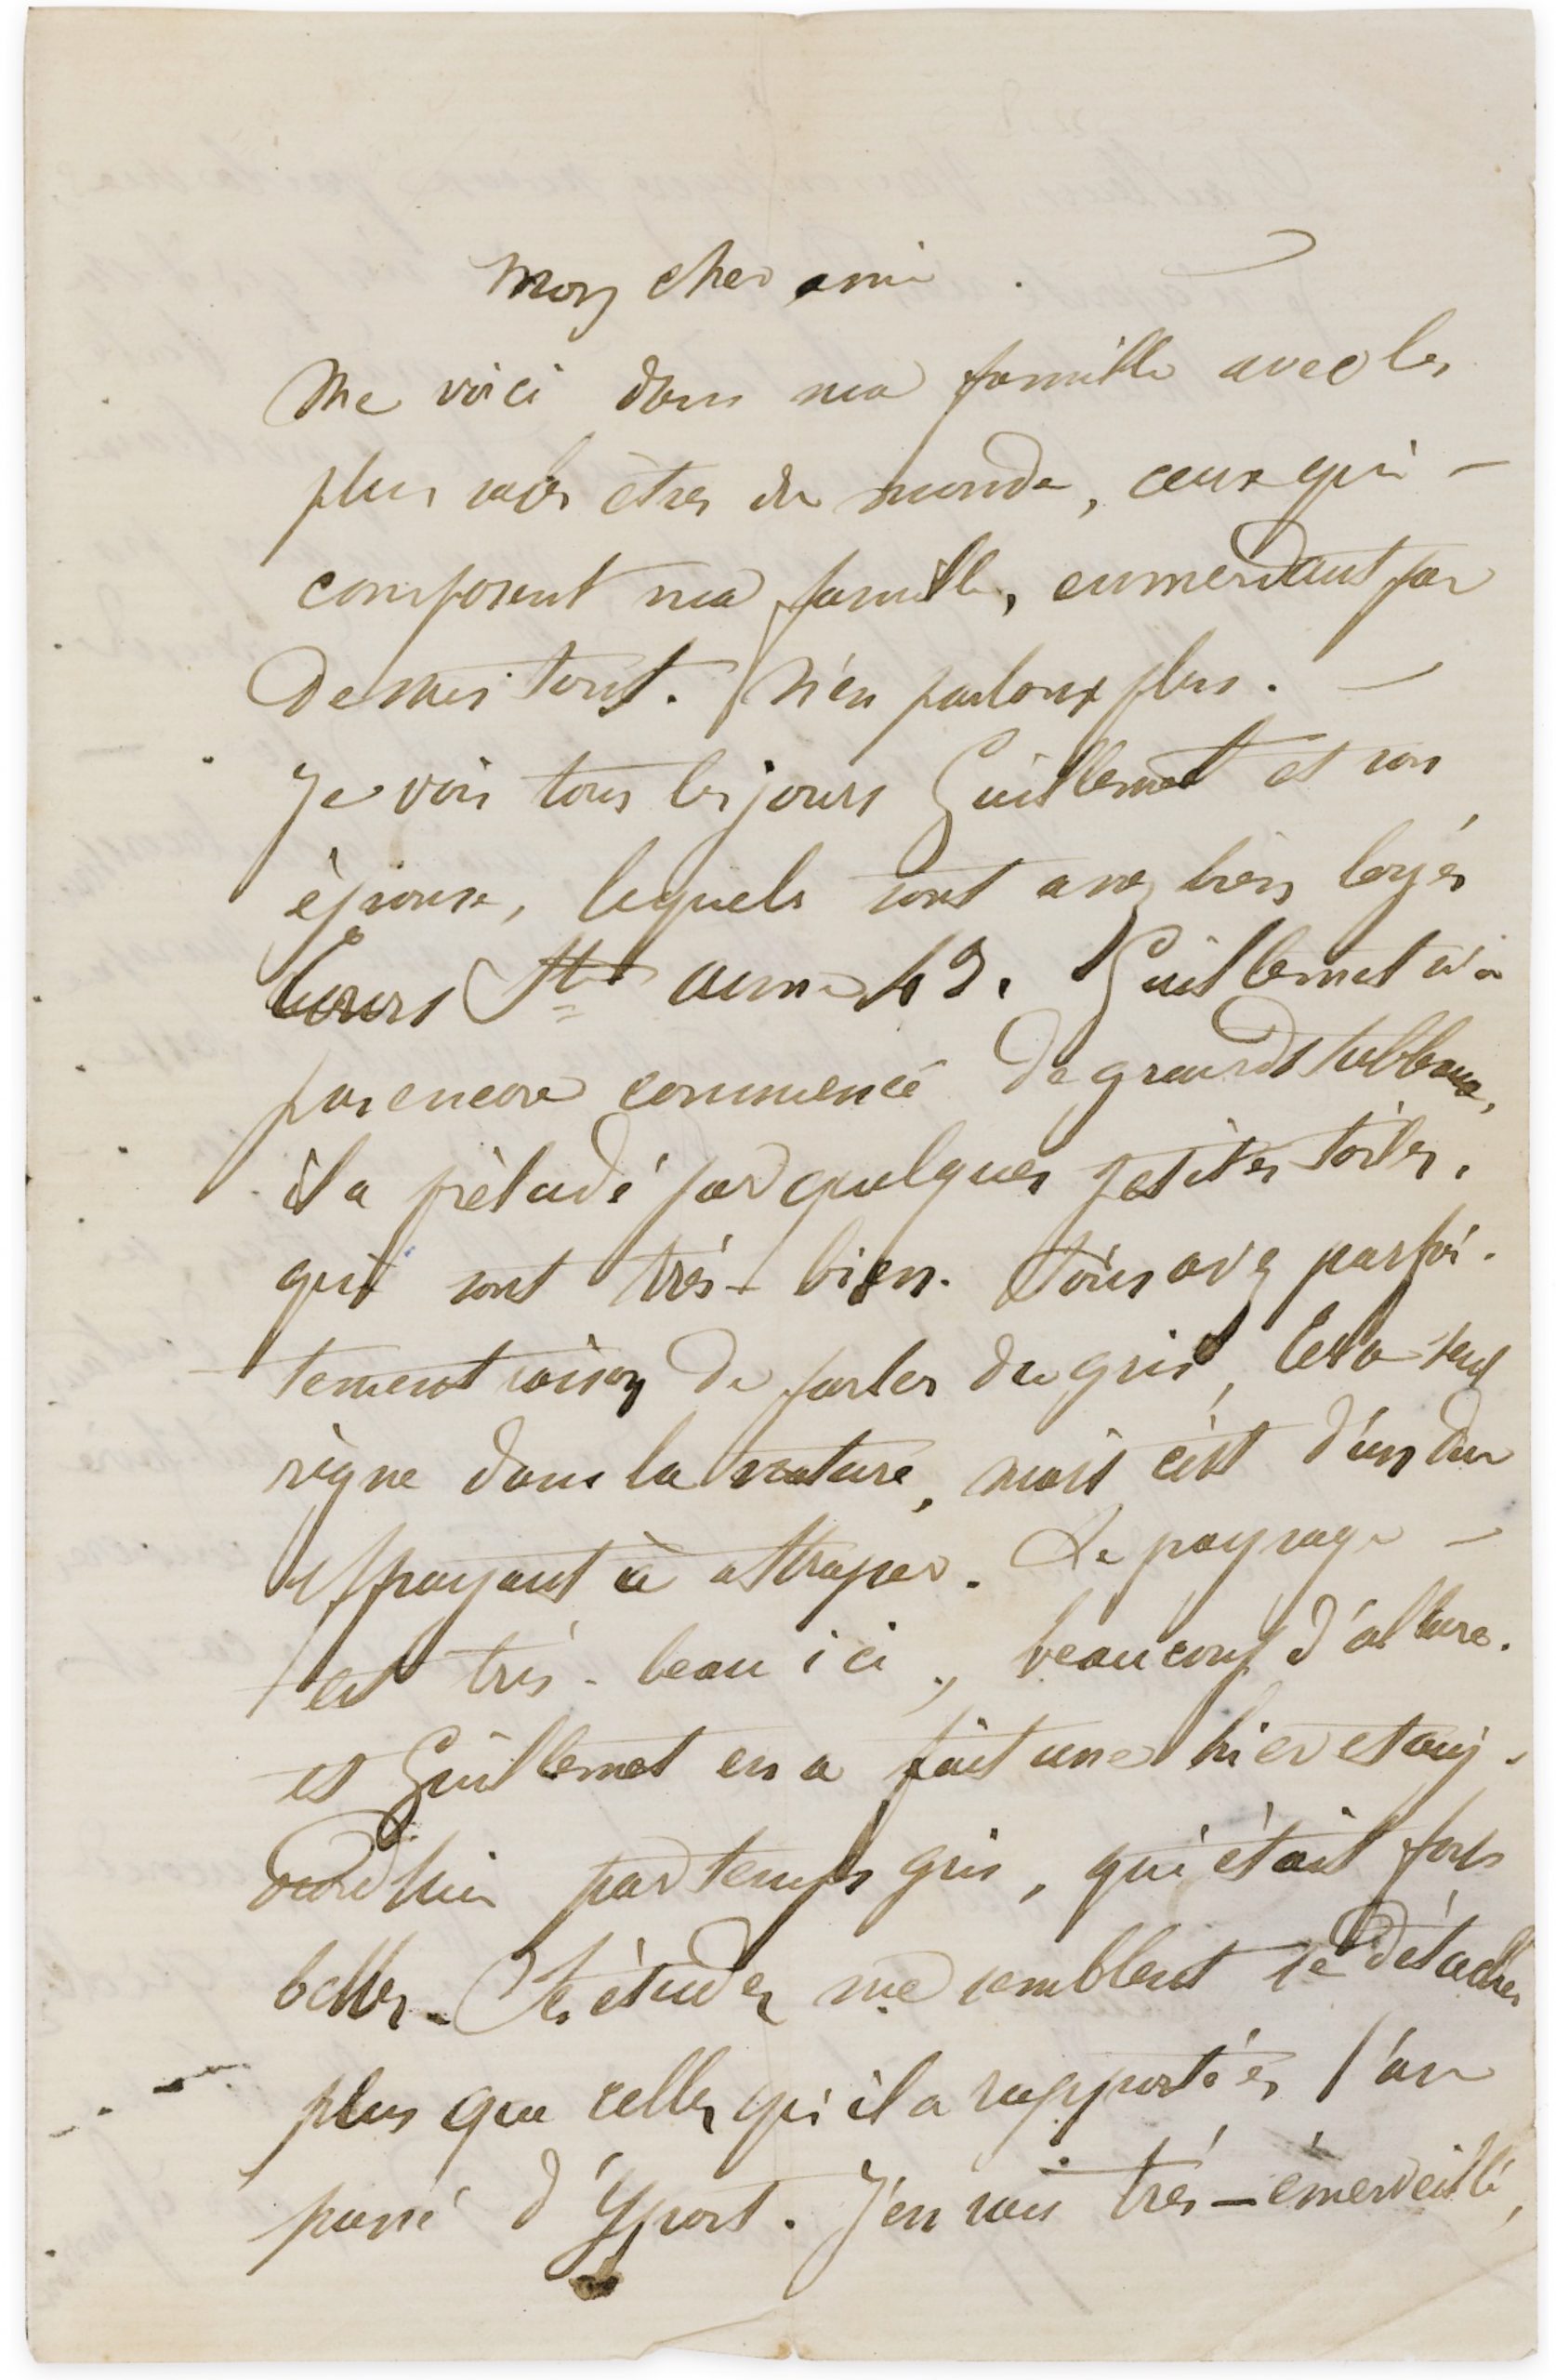 Mon cher ami.
Me voici dans ma famille avec les
plus sales êtres du monde, ceux qui -
composent ma famille, emmerdant par
dessus tout. N'en parlons plus. -
Je vois tous les jours Guillemet et son
épouse, lequels sont assez bien logés
Cours Ste anne 43. Guillemet n'a
pas encore commencé de grands tableaux,
il a prèludé par quelques petites toiles,
qui sont très-bien. Vous avez parfai-
tement raison de parler du gris, cela seul
règne dans la nature, mais c'est d'un dur
effrayant à attraper. Le paysage -
est très-beau ici, beaucoup d'allure.
et Guillemet en a fait une hier et auj-
ourd'hui par temps gris, qui était fort
belles. Ses études me semblent se détacher
plus que celles qu'il a rapportées l'an
passé d'Yport. J'en suis très-émerveillé,